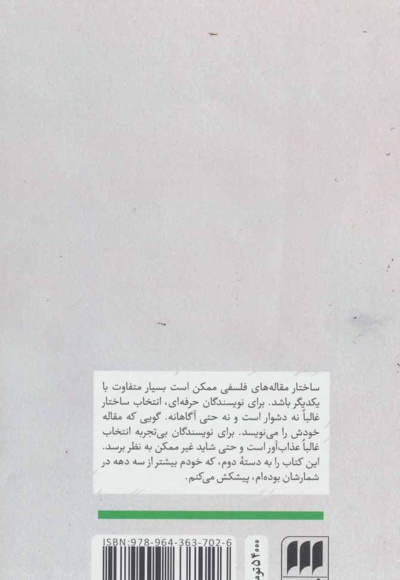 ساختار مقاله‌های فلسفی ممکن است بسیار متفاوت با
یکدیگر باشد. برای نویسندگان حرفه‌ای، انتخاب ساختار
غالباً نه دشوار است و نه حتی آگاهانه. گویی که مقاله
خودش را می‌نویسد. برای نویسندگان بی‌تجربه انتخاب
غالباً عذاب‌آور است و حتی شاید غیر ممکن به نظر برسد.
این کتاب را به دستهٔ دوم، که خودم بیشتر از سه دهه در
شمارشان بوده‌ام، پیشکش می‌کنم.
ISBN: 978-964-363-702-6
۵۴۰۰۰ تومان